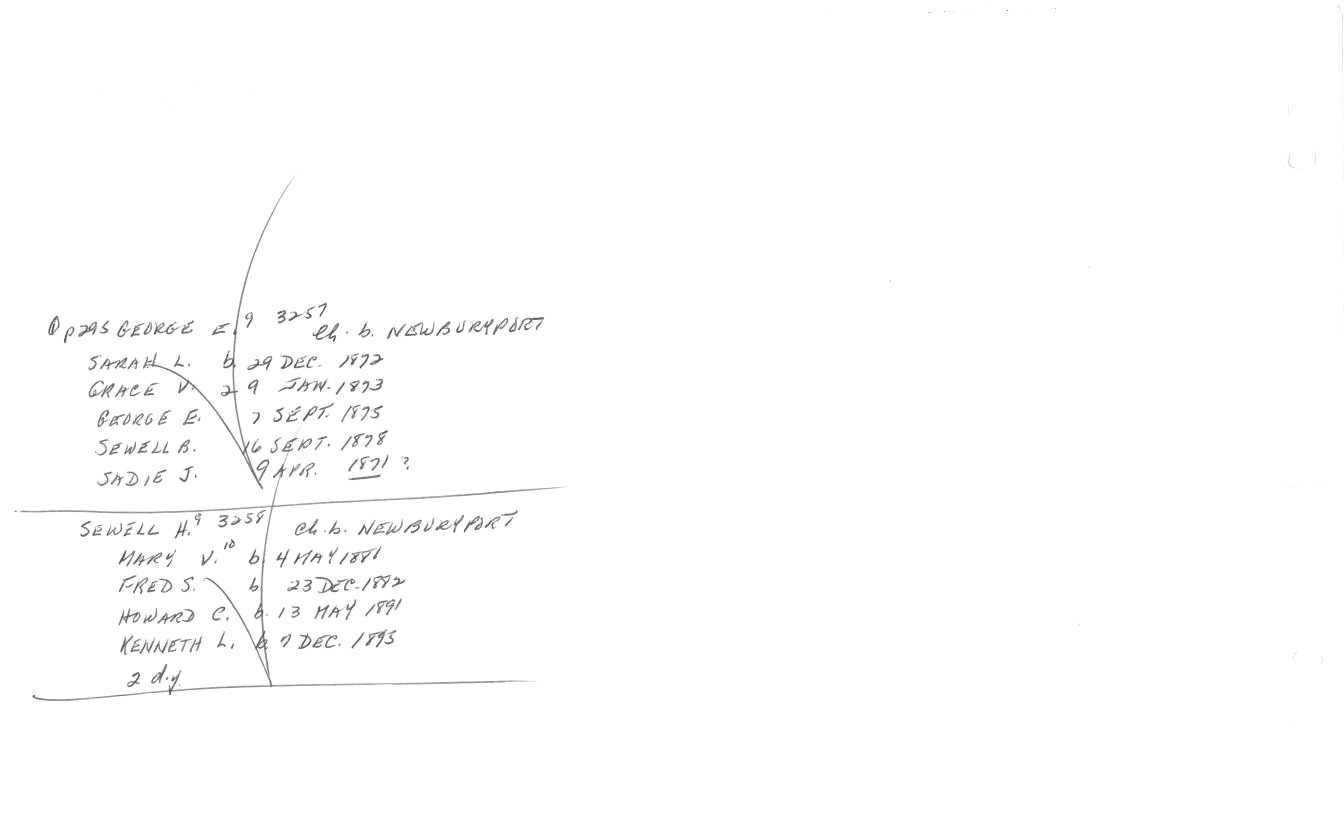 ① p295 GEORGE E.⁹ 3257 Ch. b. NEWBURYPORT
SARAH L. b. 29 DEC. 1872
GRACE V. 29 JAN. 1873
GEORGE E. 7 SEPT. 1875
SEWELL B. 16 SEPT. 1878
SADIE J. 9 APR. 1871 ?
SEWELL H.⁹ 3258 Ch. b. NEWBURYPORT
MARY V.¹⁰ b. 4 MAY 1881
FRED S. b. 23 DEC. 1882
HOWARD C. b. 13 MAY 1891
KENNETH L. b. 7 DEC. 1893
2 d.y.